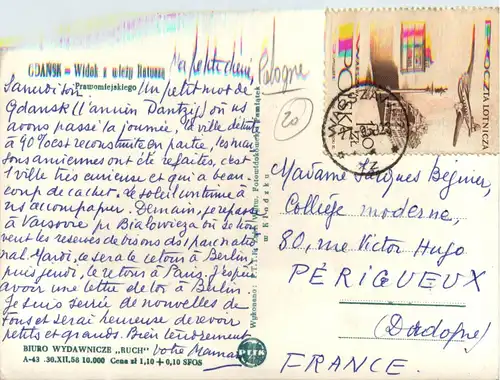 GDAŃSK — Widok z wieży Ratusza
Prawomiejskiego
Pologne
20
POCZTA LOTNICZA
Samedi soir. Un petit mot de
Gdansk (l'ancien Dantzig) où ns
avons passé la journée, la ville détruite
à 90% est reconstruite en partie, les mai-
sons anciennes ont été refaites, c'est
1 ville très curieuse et qui a beau-
coup de cachet. Le soleil continue à
ns accompagner. Demain, je repasse
à Varsovie pr Bialowieza où se trou-
vent les réserves de bisons ds 1 parc natio-
nal. Mardi, ce sera le retour à Berlin,
puis jeudi, le retour à Paris. J'espère
avoir une lettre de toi à Berlin.
Je suis sevrée de nouvelles de
tous et serai heureuse de revoir
petits et grands. Bien tendrement
Votre Maman
Madame Jacques Béquier,
Collège moderne,
80, rue Victor Hugo
PÉRIGUEUX
(Dordogne)
FRANCE.
BIURO WYDAWNICZE „RUCH"
A-43 .30.XII.58 10.000 Cena zł 1,10 + 0,10 SFOS
w Kłodzku